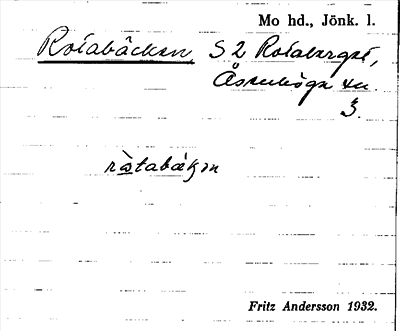 Mo hd., Jönk. l.
Rotabäcken, S 2 Rotaberget,
Åsenhöga sn.
3.
ròtabäkən
Fritz Andersson 1932.